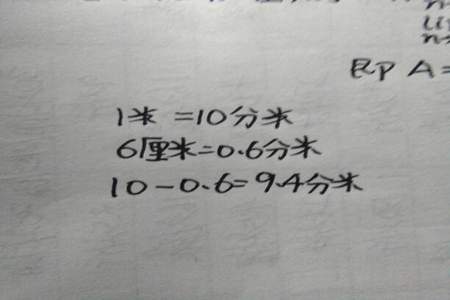 即 A =
1米 =10分米
6厘米=0.6分米
10-0.6=9.4分米